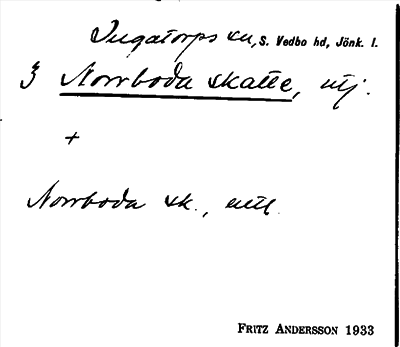 Ingatorps sn, S. Vedbo hd, Jönk. l.
3 Norrboda skatte, utj.
+
Norrboda sk.,
FRITZ ANDERSSON 1933